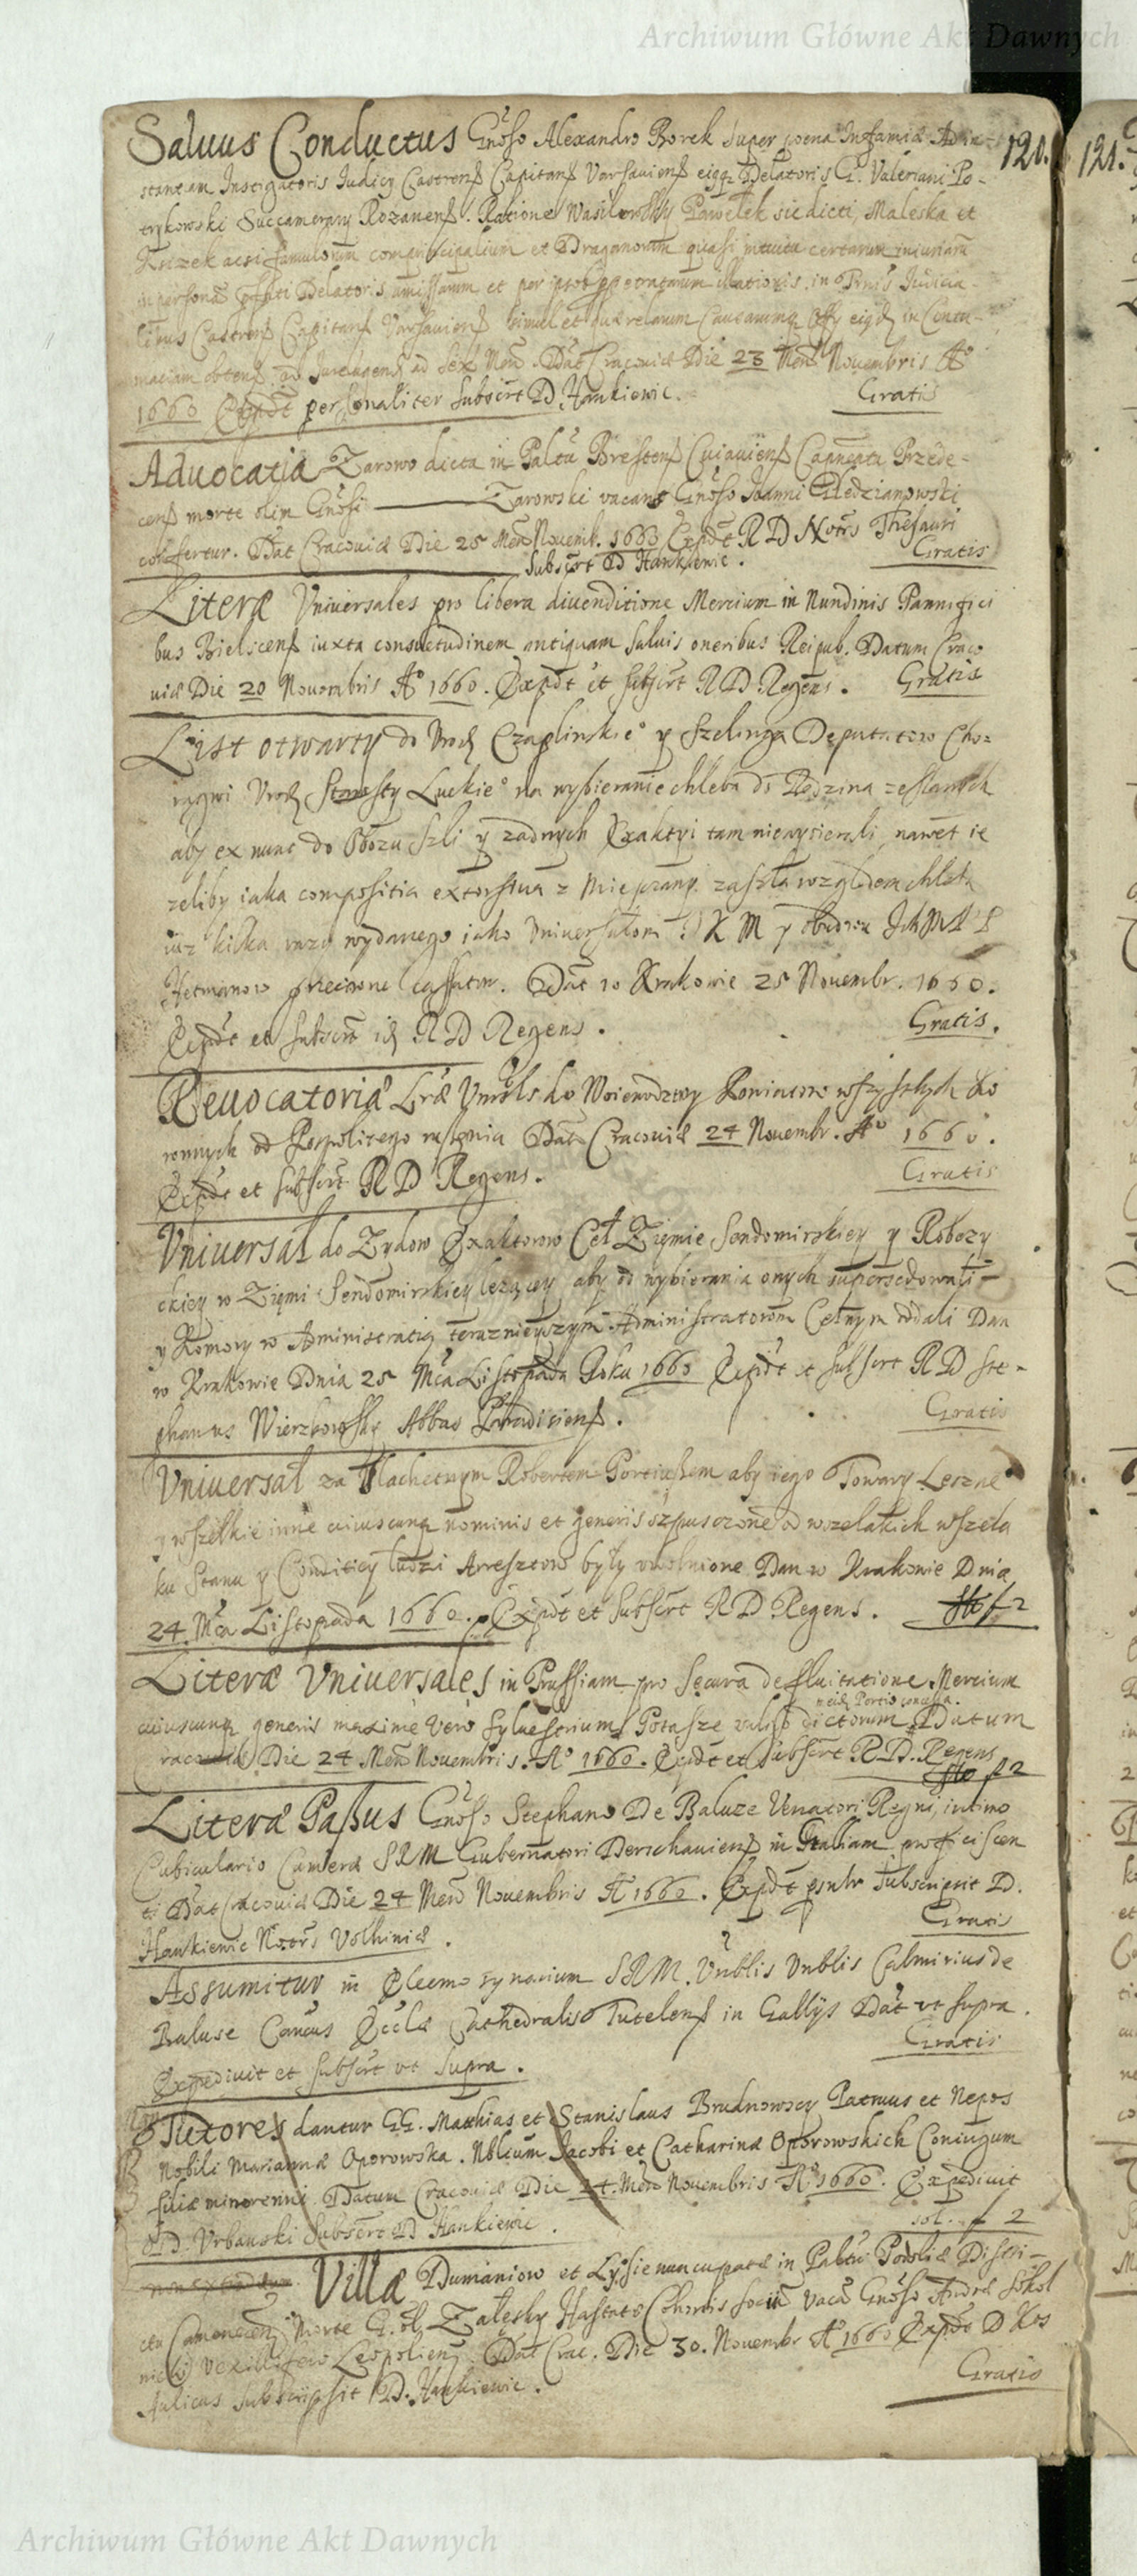 Archiwum Główne Akt Dawnych
120. 121.
Saluus Conductus Gnoso Alexandro Borek super poena Infamiæ Ad in-
stantiam Instigatoris Iudicy Castrens Capitan Varsauiens eiusq Delatoris G. Valeriani Po-
trykowski Succamerary Rozanens. Ratione Pawełek sic dicti, Maleska et
Krizek acsi famulorum comprincipalium et Draganorum quasi intuitu certarum iniuriarum
in persona Delatoris et per illationis, in Iudicia-
libus Castrens Capitan Varsauiens simul et querelarum Causarumq in Contu-
maciam obtens ad sex Mens. Dat Cracouiæ Die 23 Mens Nouembris Aº
1660 Expdt personaliter Subscrt D Hankiewic. Gratis
Aduocatia Zarowo dicta in Paltu Brestens Cuiauiens Capneatu Przede-
cens morte olim Gnosi Zarowski vacans Gnoso Ioanni Gledzianowski
confertur. Dat Cracouiæ Die 25 Mens Nouemb. 1660 Expdt R D Notrs Thesauri
Subscrt D Hankiewic. Gratis
Literæ Vniuersales pro libera diuenditione Mercium in Nundinis Pannifici
bus Bielscens iuxta consuetudinem antiquam saluis oneribus Reipub. Datum Craco
uiæ Die 20 Nouembris Aº 1660. Expdt et subscrt R D Regens. Gratis
List otwarty do Vrod Czaplinskieº y Szelinga Deputatow Cho=
rągwi Vrod Starosty Luckieº na wybieranie chleba do Radzina zesłanych
aby ex nunc do Obozu szli y zadnych Exaktyi tam niewycierali, nawet ie
zeliby iaka compositia extorstua z Mieszczany zaszła względem chleba
iuz kilka razy wydanego iako Vniuersałom I K M y
Hetmanow cassatur. Dat w Krakowie 25 Nouembr. 1660.
Expdt et subscrt id R D Regens. Gratis.
Reuocatoriæ Lræ Vnirsls do Woiewodztwy Powiatow wszystkich Ko
ronnych od Pospolitego ruszenia Dat Cracouiæ 24 Nouembr. Aº 1660.
Expdt et subscrt R D Regens. Gratis
Vniuersał do Zydow Exaktorow Ceł Ziemie Sendomirskiey y
ckiey w Ziemi Sendomirskiey lezącey aby od wybierania onych supersedowali
y Komory w Administratią teraznieyszym Administratorom Celnym oddali Dan
w Krakowie Dnia 25 Mca Listopada Roku 1660 Expdt et subscrt R D Ste-
phanus Wierzbowski Abbas Paradisiens. Gratis
Vniuersał za Slachetnym Robertem Portiussem aby iego Towary Leszne
y wszelkie inne cuiuscunq nominis et generis szpuszczone od wszelakich wszela
ku Stanu y Conditiey ludzi Arresztow były vwolnione Dan w Krakowie Dnia
24 Mca Listopada 1660. Expdt et subscrt R D Regens. f 2
Literæ Vniuersales in Prussiam pro secura defluitatione Mercium
cuiuscunq generis maxime vero syluestrium Potasze dictorum Datum
Portio concessa.
racouiæ Die 24 Mens Nouembris. Aº 1660. Expdt et subscrt R D. Regens
f 2
Literæ Passus Gnoso Stephano De Baluze Venatori Regni, intimo
Cubiculario Cameræ S R M Gubernatori Derschauiens in Galliam proficiscen
ti Dat Cracouiæ Die 24 Mens Nouembris Aº 1660. Expdt psnlr subscripsit D.
Hankiewic Notrs Volhiniæ. Gratis
Assumitur in Eleemosynarium S R M. Vnblis Vnblis Calminius de
Baluse Cancus Eccle Cathedralis Tutelens in Gallÿs Dat vt supra.
Expediuit et subscrt vt supra. Gratis
Tutores dantur GG. Mathias et Stanislaus Brudnowscy Patruus et Nepos
Nobili Mariannæ Oporowska. Nblium Iacobi et Catharinæ Oporowskich Coniugum
filiæ minorenni. Datum Cracouiæ Die 24. Mens Nouembris Aº 1660. Expediuit
D. Vrbanski Subscrt D Hankiewic. sol. f 2
Villæ Dumaniow et Lysie nuncupatæ in Paltu Podoliæ Distri-
ctu Camenecen Morte G. olim Zalęsky Hastatæ Cohortis Socii Vacan Gnoso Andreæ Sokol
nicki Vexillifero Leopoliens. Dat Crac. Die 30. Nouembr Aº 1660 Expdt D Kos
Aulicus Subscripsit D. Hankiewic. Gratis
Archiwum Główne Akt Dawnych